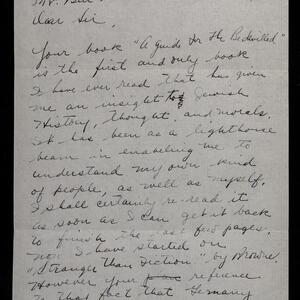 Dear Sir,
Your book "A guide for the Bedevilled"
is the first and only book
I have ever read that has given
me an insight to Jewish
History, thought, and morals.
It has been as a lighthouse
beam in enabling me to
understand my own kind
of people, as well as myself.
I shall certainly re-read it
as soon as I can get it back
to finish the last few pages.
Now I have started on
"Stranger than Fiction", by Browne.
However your reference
to that fact that Germany